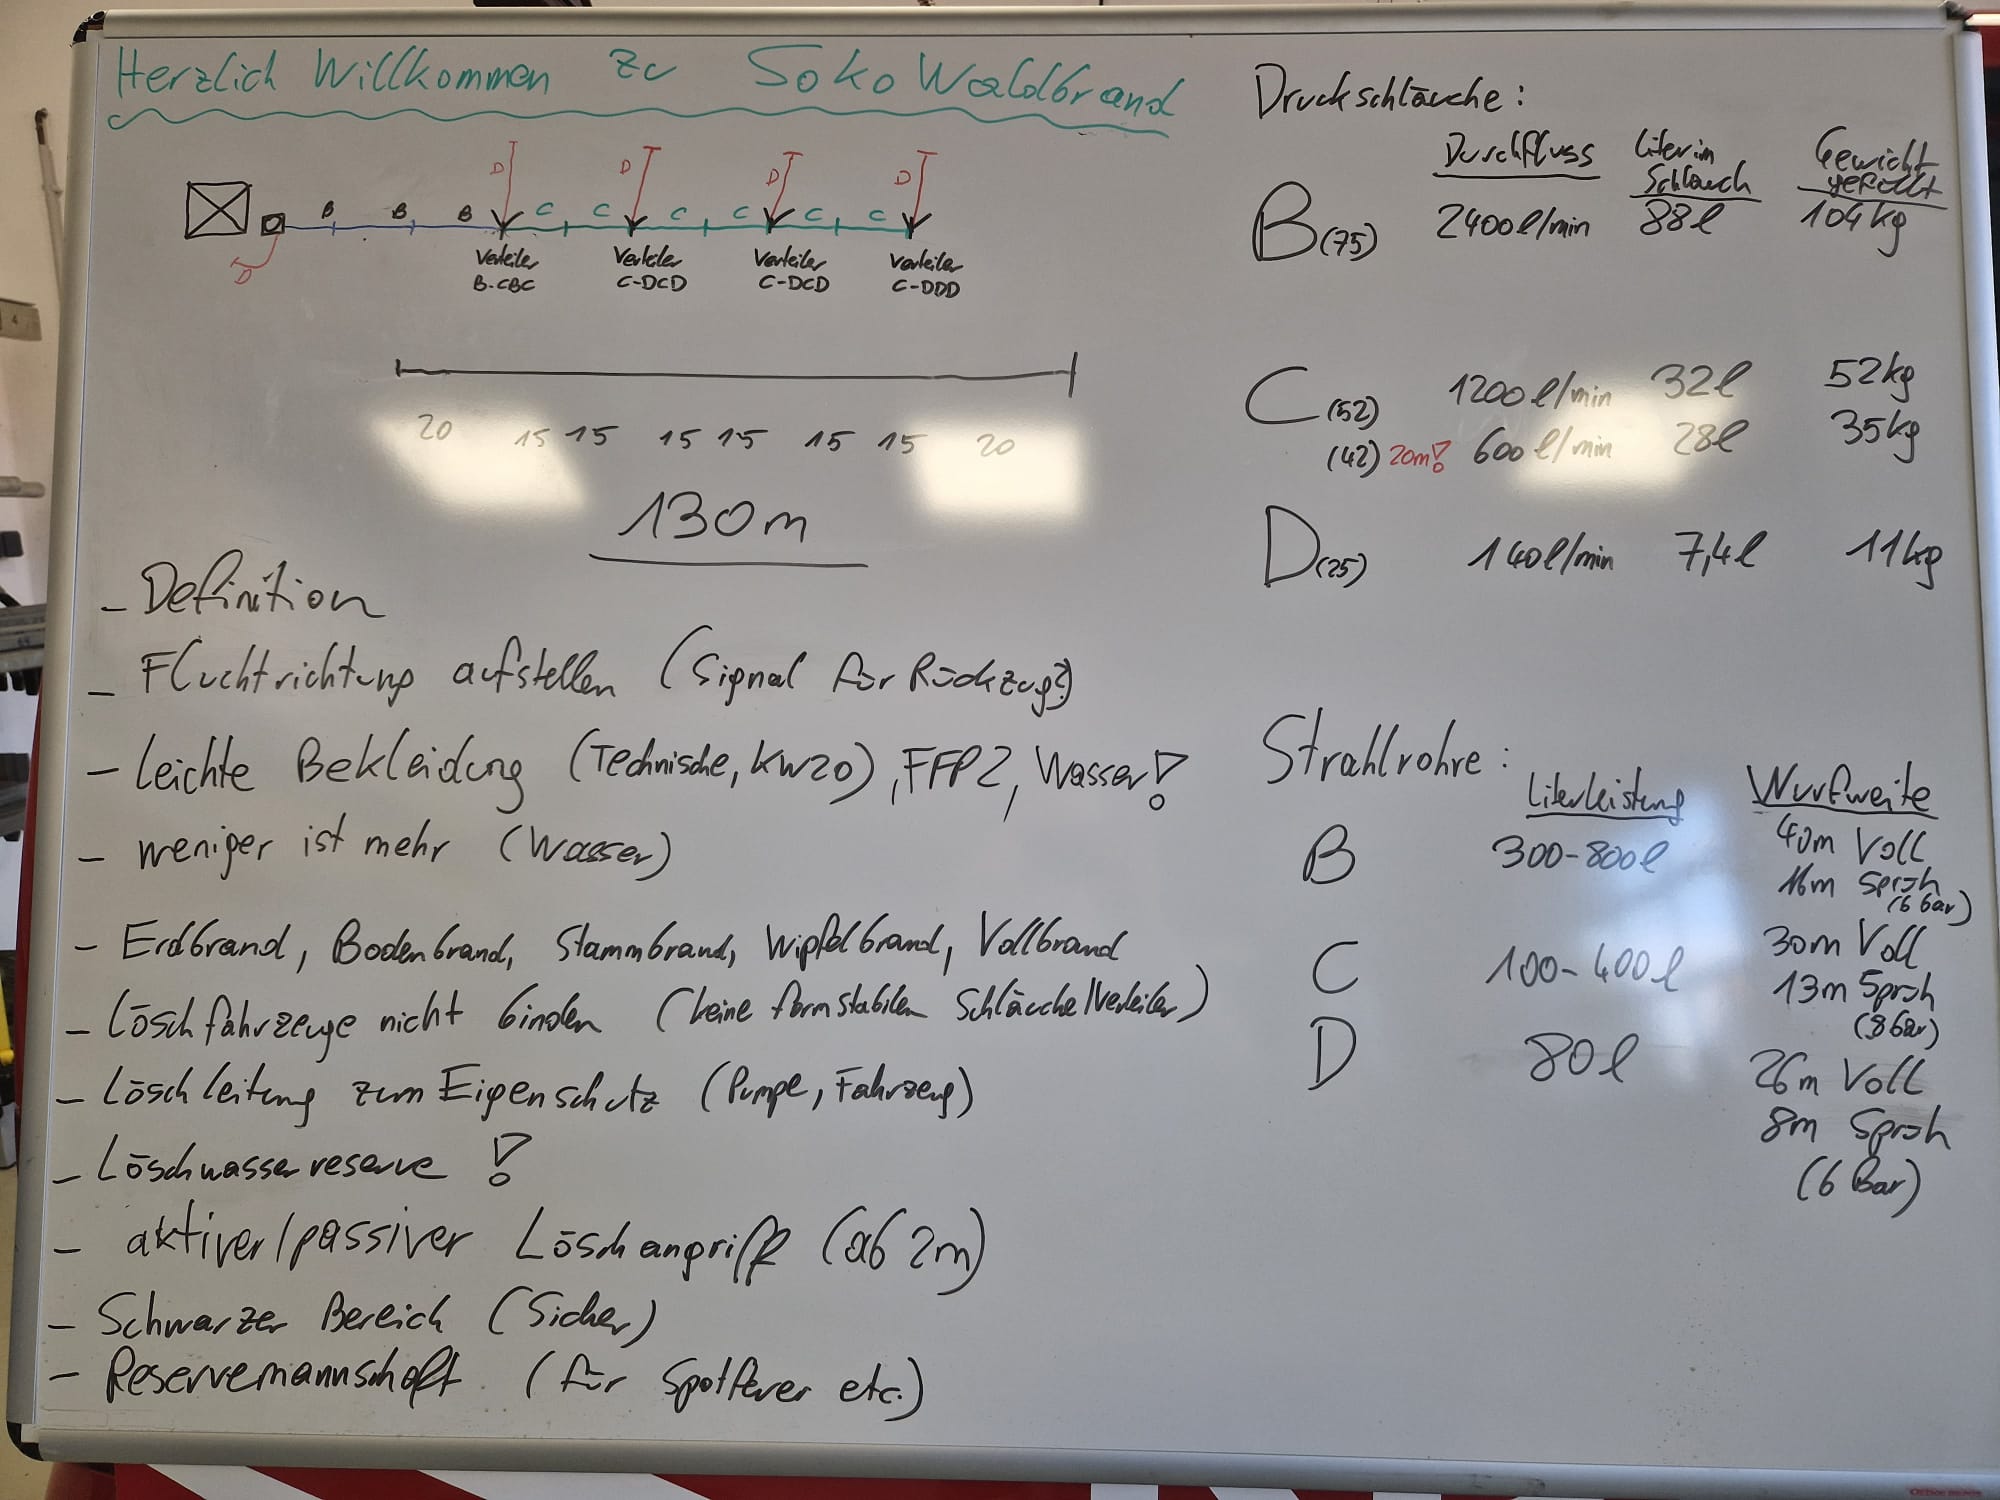 Herzlich Willkommen zu Soko Waldbrand
D D D D
B B B C C C C C C
D
Verteiler B-CBC
Verteiler C-DCD
Verteiler C-DCD
Verteiler C-DDD
20 15 15 15 15 15 15 20
130m
- Definition
- Fluchtrichtung aufstellen (Signal für Rückzug?)
- leichte Bekleidung (Technische, KW20), FFP2, Wasser!
- weniger ist mehr (Wasser)
- Erdbrand, Bodenbrand, Stammbrand, Wipfelbrand, Vollbrand
- Löschfahrzeuge nicht binden (keine formstabilen Schläuche/Verteiler)
- Löschleitung zum Eigenschutz (Pumpe, Fahrzeug)
- Löschwasserreserve !
- aktiver/passiver Löschangriff (ab 2m)
- Schwarzer Bereich (Sicher)
- Reservemannschaft (für Spotfeuer etc.)
Druckschläuche:
Durchfluss
Liter im Schlauch
Gewicht gefüllt
B (75) 2400l/min 88l 104kg
C (52) 1200l/min 32l 52kg
(42) 20m! 600l/min 28l 35kg
D (25) 140l/min 7,4l 11kg
Strahlrohre:
Literleistung Wurfweite
B 300-800l 40m Voll
16m Sprüh
(6 bar)
C 100-400l 30m Voll
13m Sprüh
(8 bar)
D 80l 26m Voll
8m Sprüh
(6 Bar)